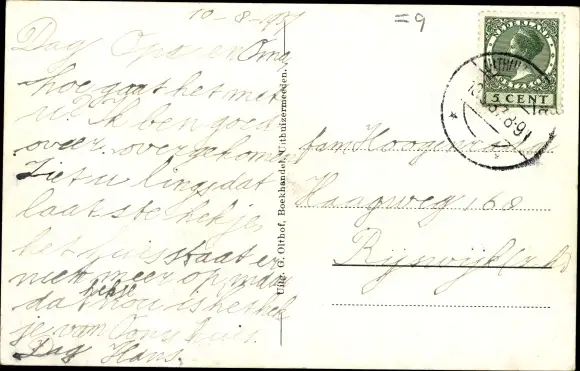 10-8-1937
= 9
Dag Opa en Oma
hoe gaat het met
u? Ik ben goed
over overgekomen
Ziet u links dat
laatste hekje
het huis staat er
niet meer op maar
dat hekje is het hek
je van Tony huis.
Dag Hans.
Uitg. G. Olthof, Boekhandel, Uithuizermeeden.
NEDERLAND
5 CENT
fam Hoogen
Haagweg 168
Rijswijk